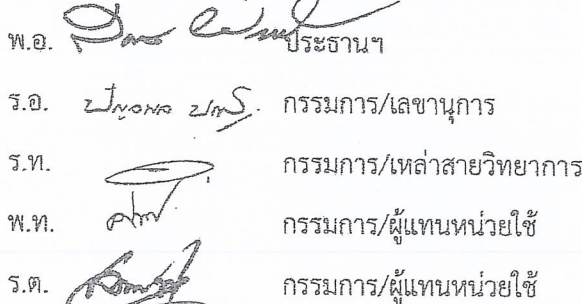 พ.อ. ประธานฯ
ร.อ. กรรมการ/เลขานุการ
ร.ท. กรรมการ/เหล่าสายวิทยาการ
พ.ท. กรรมการ/ผู้แทนหน่วยใช้
ร.ต. กรรมการ/ผู้แทนหน่วยใช้